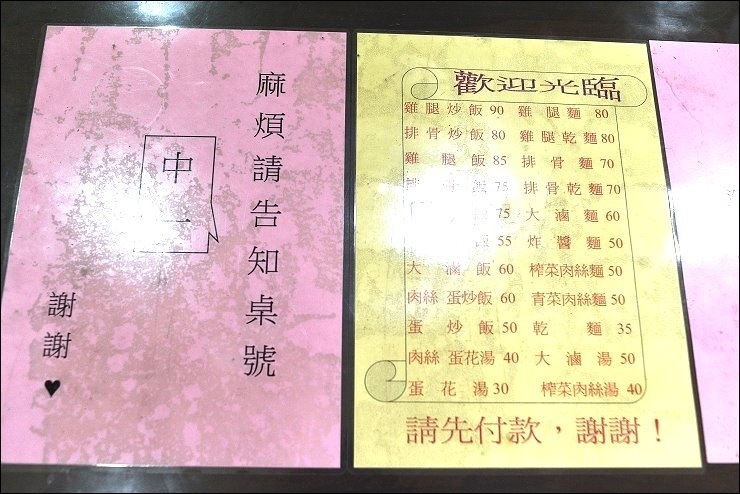 麻煩請告知桌號
中一
謝謝♥
歡迎光臨
雞腿炒飯 90 雞腿麵 80
排骨炒飯 80 雞腿乾麵 80
雞腿飯 85 排骨麵 70
排骨飯 75 排骨乾麵 70
75 大滷麵 60
飯 55 炸醬麵 50
大滷飯 60 榨菜肉絲麵 50
肉絲蛋炒飯 60 青菜肉絲麵 50
蛋炒飯 50 乾麵 35
肉絲蛋花湯 40 大滷湯 50
蛋花湯 30 榨菜肉絲湯 40
請先付款，謝謝！